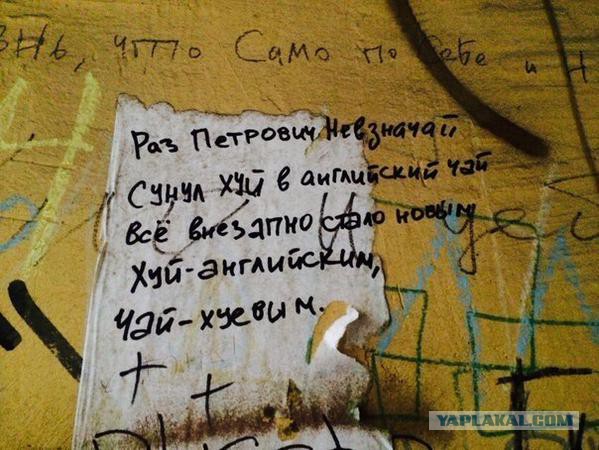 что Само по Себе и Н
Раз Петрович Невзначай
Сунул хуй в английский чай
Всё внезапно стало новым
Хуй-английским,
Чай-хуевым.
YAPLAKAL.COM